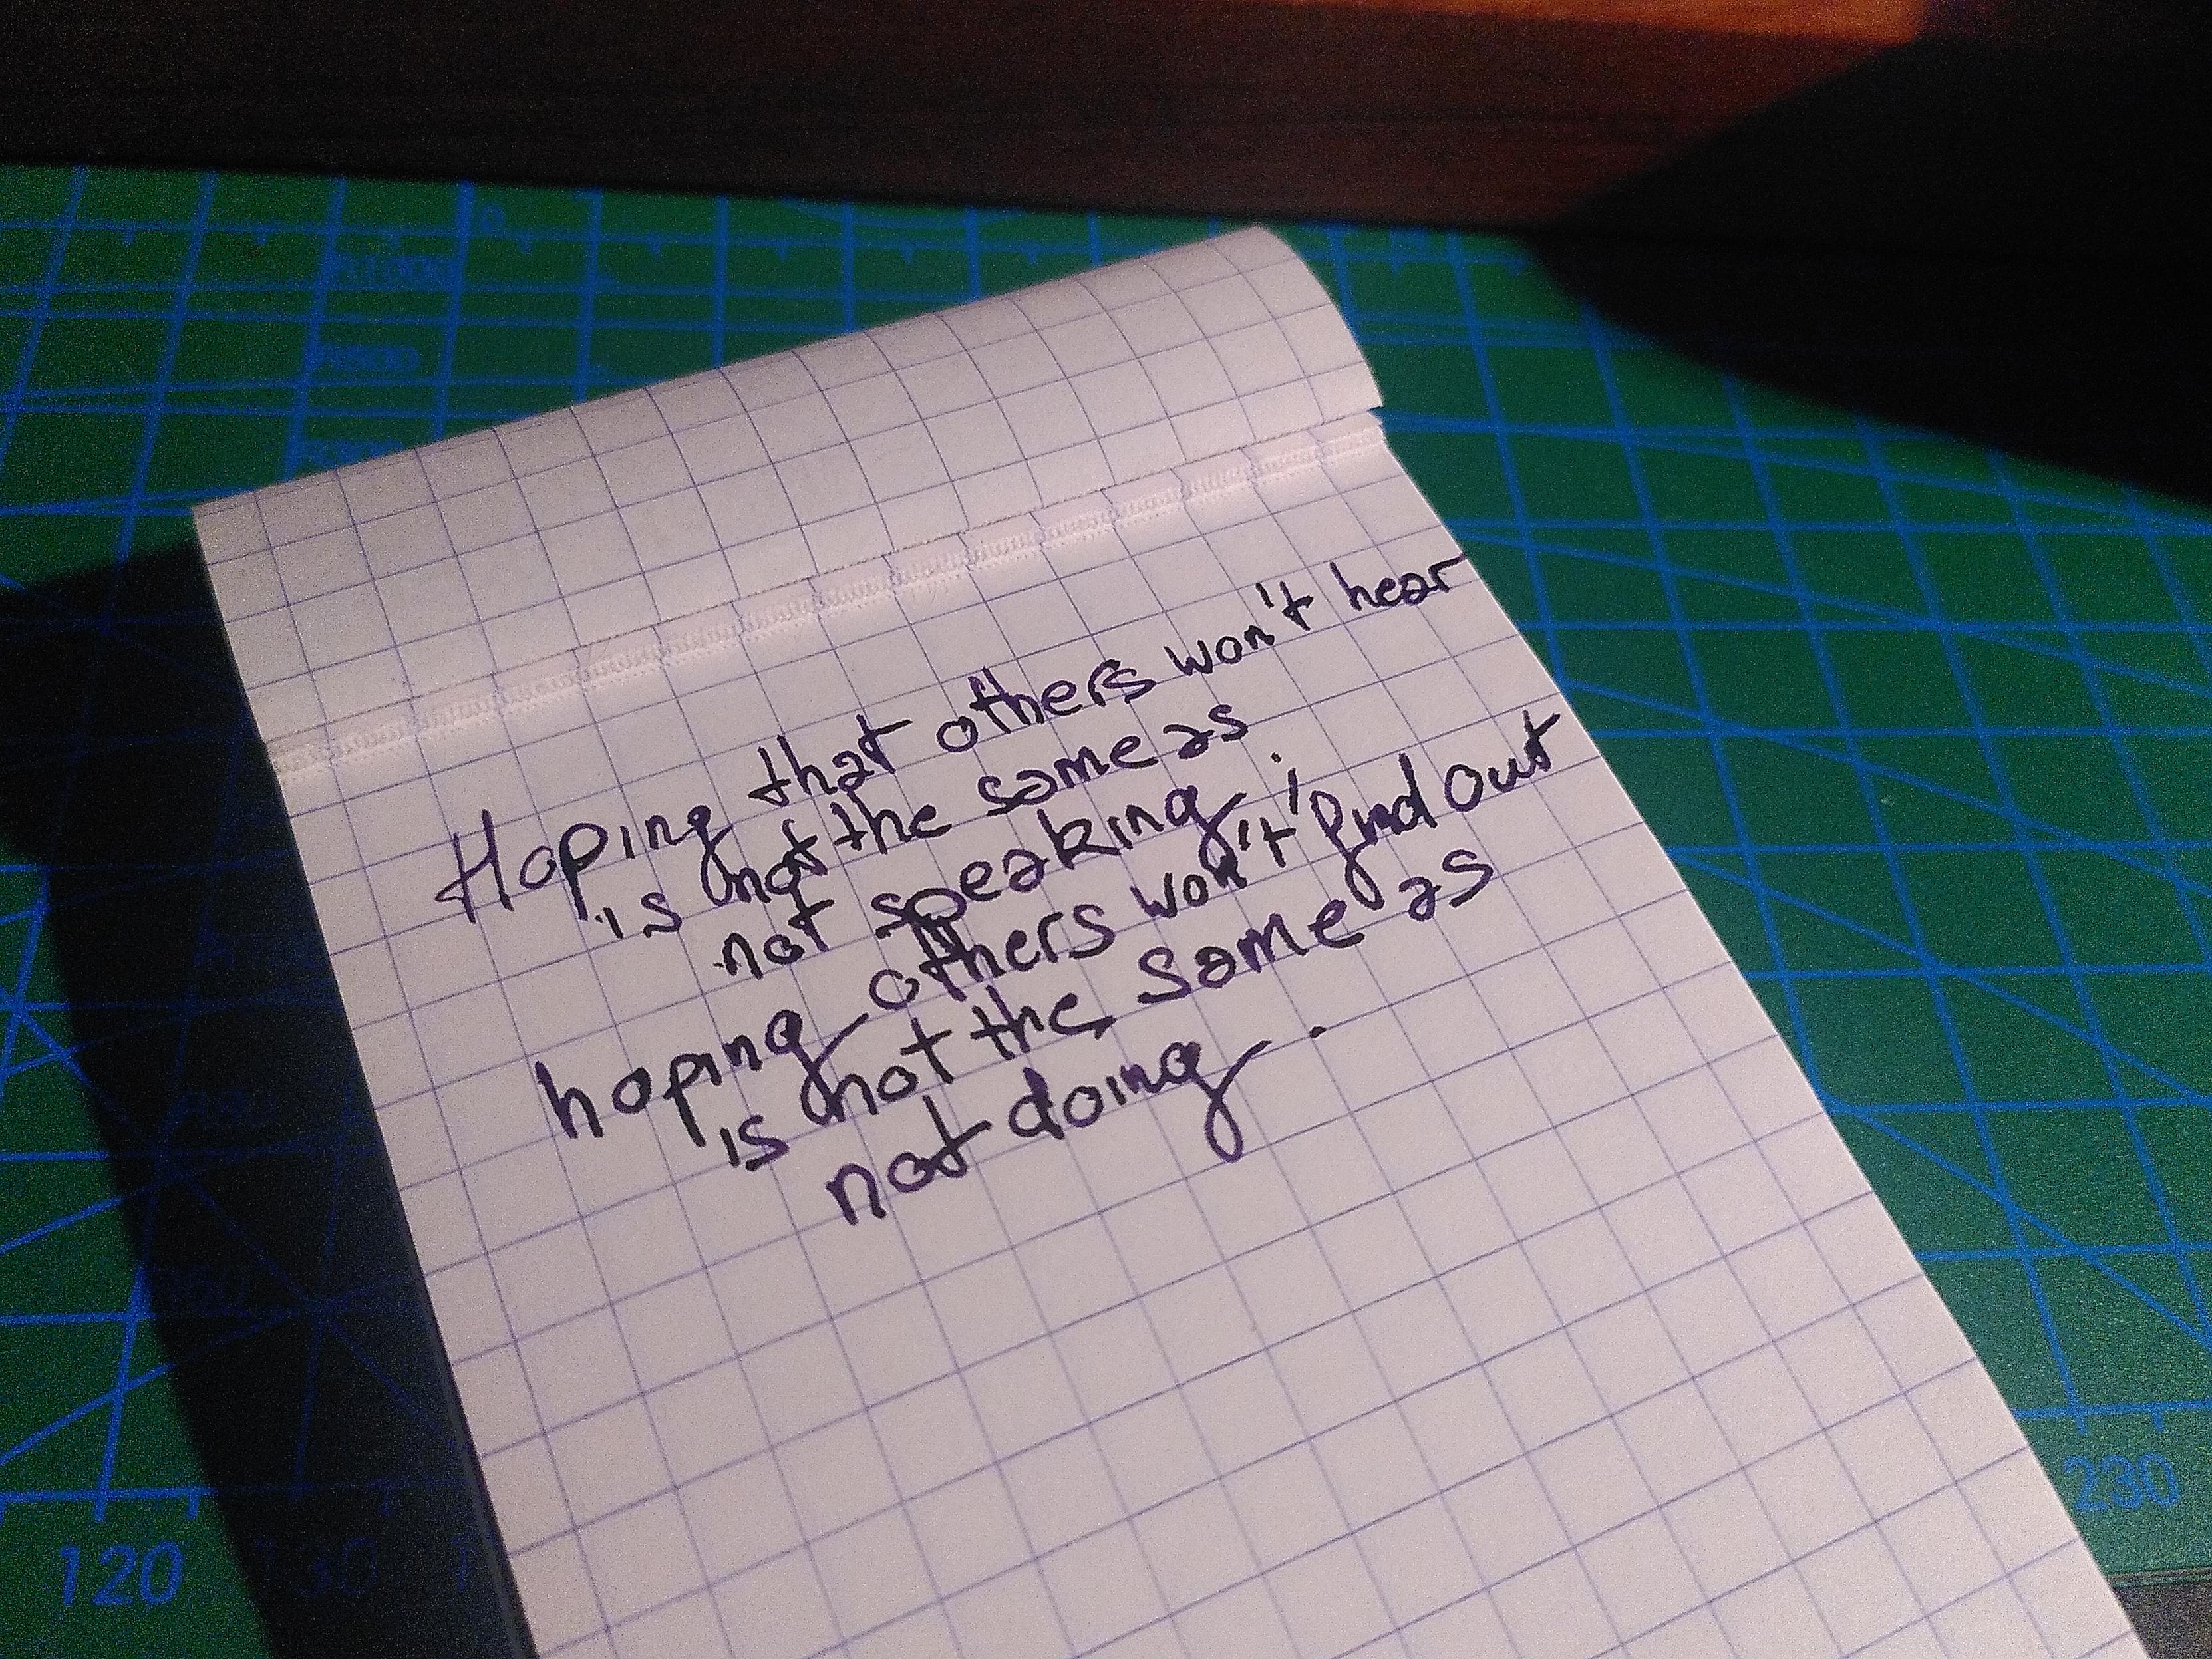 Hoping that others won't hear
is not the same as
not speaking;
hoping others won't find out
is not the same as
not doing.
230
120